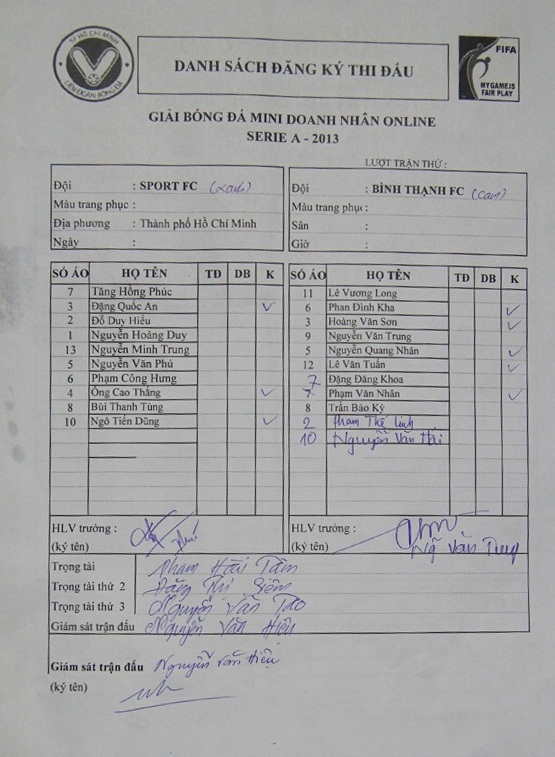 TP HỒ CHÍ MINH
LIÊN ĐOÀN BÓNG ĐÁ
DANH SÁCH ĐĂNG KÝ THI ĐẤU
FIFA
MY GAME IS
FAIR PLAY
GIẢI BÓNG ĐÁ MINI DOANH NHÂN ONLINE
SERIE A - 2013
LƯỢT TRẬN THỨ :
Đội : SPORT FC (xanh)
Màu trang phục :
Địa phương : Thành phố Hồ Chí Minh
Ngày :
Đội : BÌNH THẠNH FC (cam)
Màu trang phục :
Sân :
Giờ :
SỐ ÁO HỌ TÊN TĐ DB K
7 Tăng Hồng Phúc
3 Đặng Quốc An ✓
2 Đỗ Duy Hiếu
1 Nguyễn Hoàng Duy
13 Nguyễn Minh Trung
5 Nguyễn Văn Phú
6 Phạm Công Hưng
4 Ông Cao Thắng ✓
8 Bùi Thanh Tùng
10 Ngô Tiến Dũng ✓
SỐ ÁO HỌ TÊN TĐ DB K
11 Lê Vương Long
6 Phan Đình Kha ✓
3 Hoàng Văn Sơn ✓
9 Nguyễn Văn Trung
5 Nguyễn Quang Nhân ✓
12 Lê Văn Tuấn ✓
7 Đặng Đăng Khoa
Phạm Văn Nhân ✓
8 Trần Bảo Kỳ
2 Phạm Thế Linh
10 Nguyễn Văn Hải
HLV trưởng :
(ký tên)
HLV trưởng :
(ký tên)
Trọng tài Phạm Hải Tâm
Trọng tài thứ 2 Đặng Thị
Trọng tài thứ 3 Nguyễn Văn Tao
Giám sát trận đấu Nguyễn Văn Hiệu
Giám sát trận đấu Nguyễn Văn Hiệu
(ký tên)